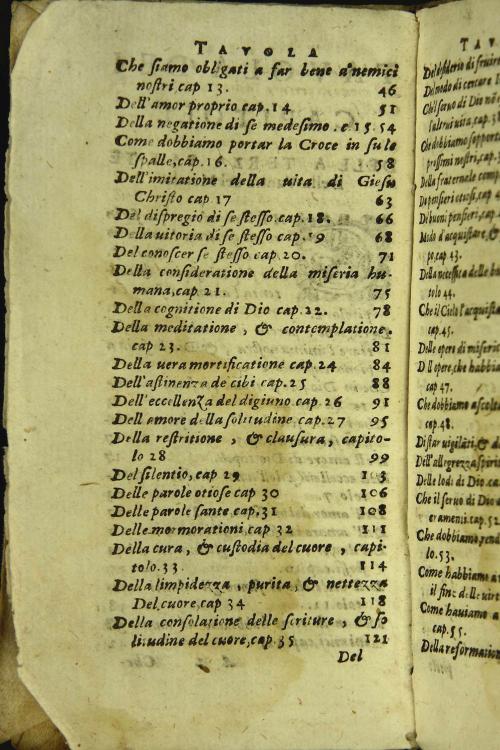 TAVOLA
Che siamo obligati a far bene a nemici
nostri cap 13. 46
Dell'amor proprio cap. 14 51
Della negatione di se medesimo. c 15. 54
Come dobbiamo portar la Croce in su le
spalle, cap. 16. 58
Dell'imitatione della uita di Giesu
Christo cap. 17 63
Del dispregio di se stesso. cap. 18. 66
Della uitoria di se stesso cap. 19 68
Del conoscer se stesso cap. 20. 71
Della consideratione della miseria hu-
mana, cap 21. 75
Della cognitione di Dio cap. 22. 78
Della meditatione, & contemplatione.
cap 23. 81
Della uera mortificatione cap. 24 84
Dell'astinenza de cibi cap. 25 88
Dell'eccellenza del digiuno cap. 26 91
Dell amore della solitudine cap. 27 95
Della restritione, & clausura, capito-
lo 28 99
Del silentio, cap 29 103
Delle parole otiose cap 30 106
Delle parole sante cap, 31 108
Delle mormorationi cap 32 111
Della cura, & custodia del cuore, capi-
tolo. 33. 114
Della limpidezza, purita, & nettezza
Del cuore cap 34 118
Della consolatione delle scriture, & so
litudine del cuore, cap. 35 121
Del
TAV
Del disiderio di fruire
Del modo di cercare
Ch'l seruo di Dio no
l'altrui uita, cap. 38
Che dobbiamo sopport
prossimi nostri, cap.
Della fraternale comp
De pensieri otiosi, cap. 41
De buoni pensieri, cap.
Modo d'acquistare, &
po, cap 43.
Della necessita delle bu
tolo 44.
Che il Cielo s'acquista
cap. 45.
Delle opere di miseric
cap 47.
Che dobbiamo ascolt
cap. 48.
Di star uigilati, & d
Dell'allegrezza spirit
Delle lodi di Dio, ca
Che il seruo di Dio
cap. 52
Che dobbiamo, rend
lo. 53.
Come habbiamo a
il fine delle uirt
Come hauiamo a
cap. 55.
Della reformation